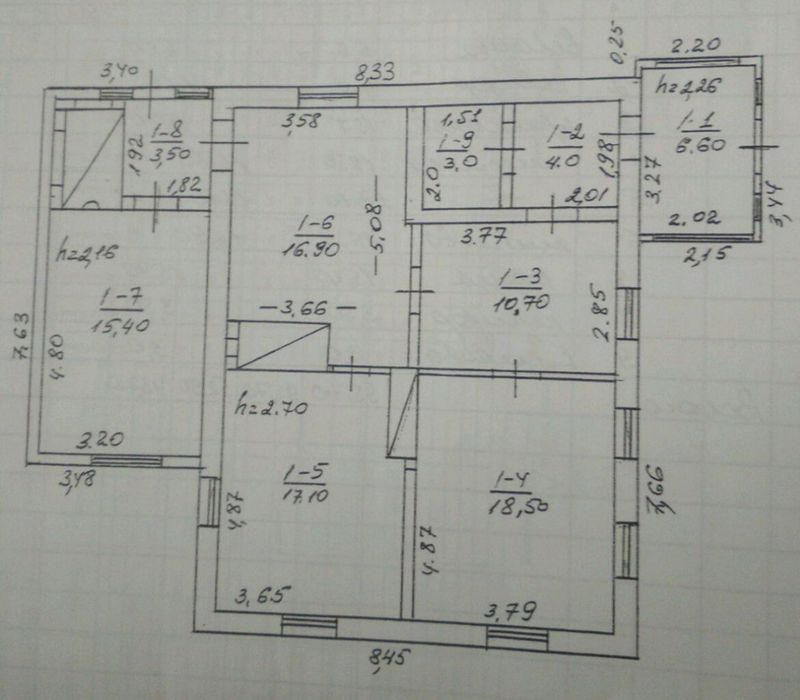 3,40
8,33
0,25
2.20
h=2,26
1-1
6.60
3.27
3,44
2.02
2,15
1-8
3,50
1,92
1,82
3,58
1,51
1-9
3,0
2.0
1-2
4.0
1,98
2,01
1-6
16.90
5.08
3,66
3.77
1-3
10,70
2.85
h=2,16
1-7
15,40
7,63
4.80
3.20
3,48
h=2.70
1-5
17.10
4,87
3,65
1-4
18,50
4.87
3,79
7,66
8,45